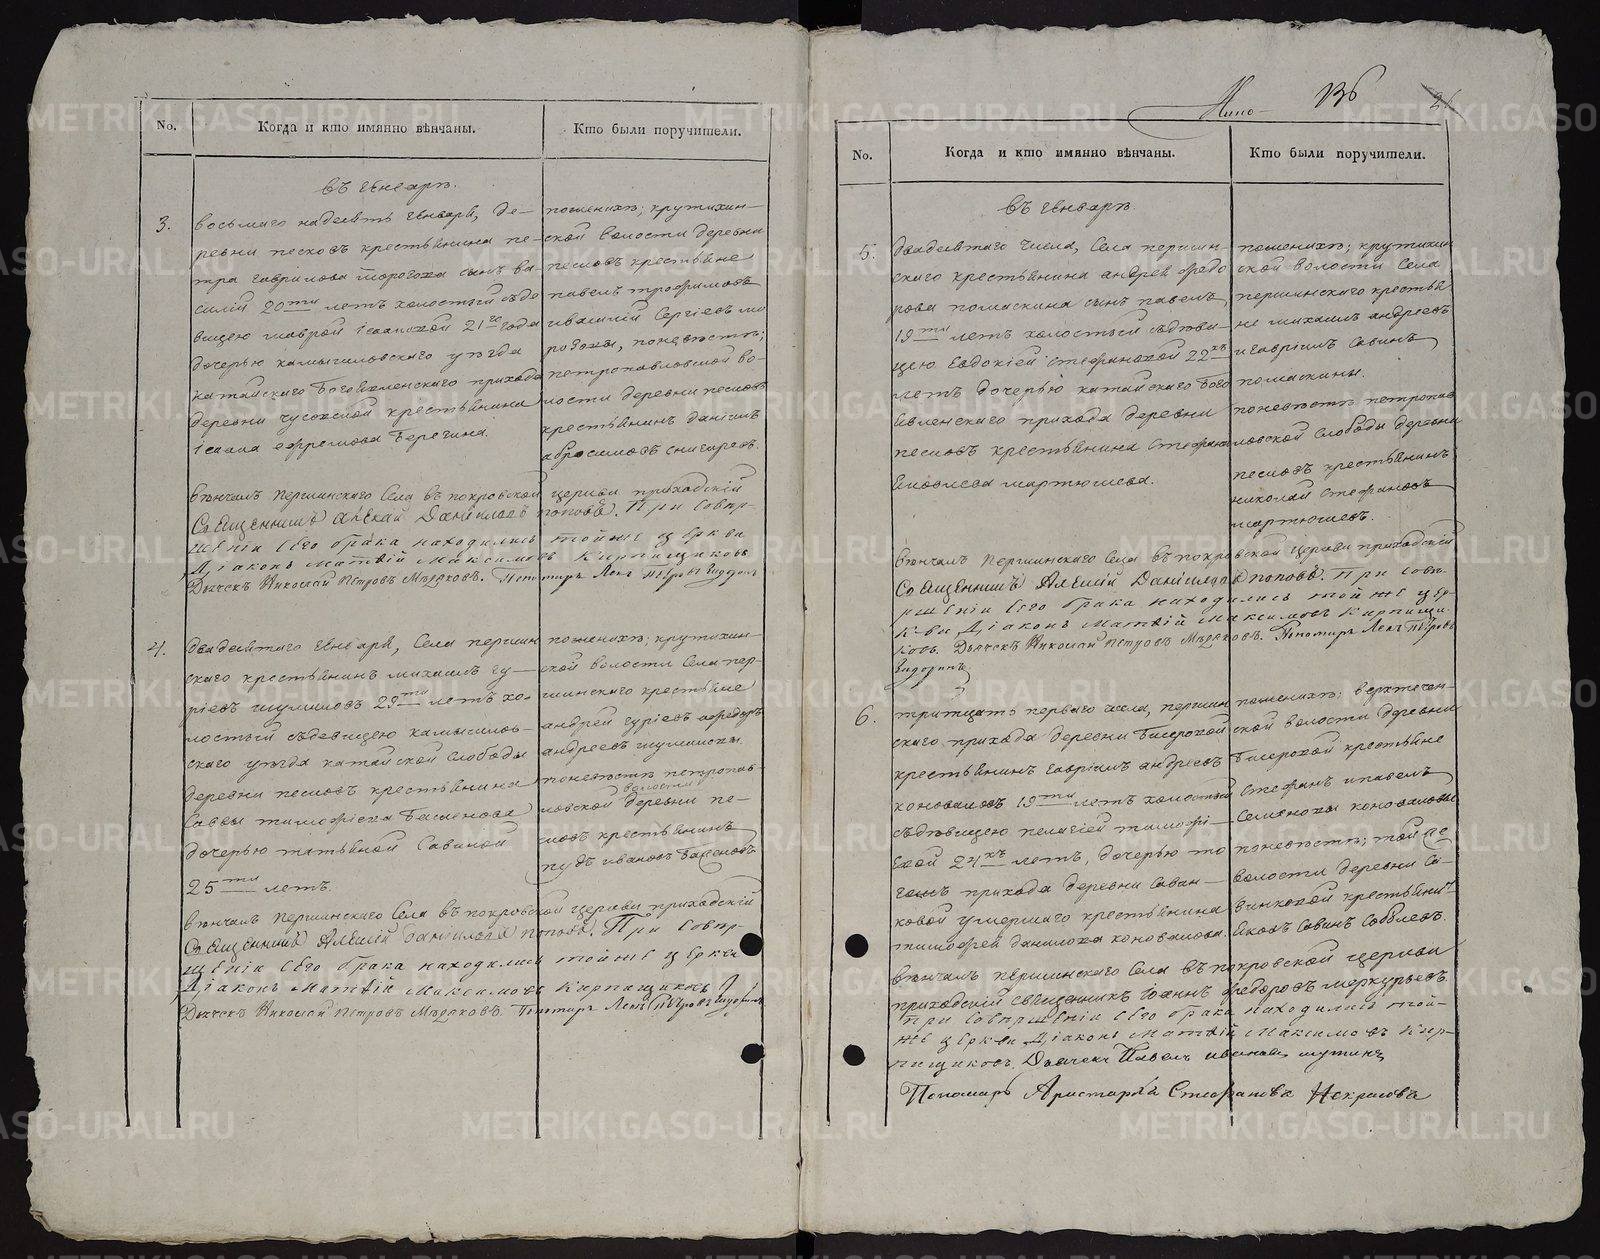 No.
Когда и кто имянно вѣнчаны.
Кто были поручители.
въ генварѣ.
3.
восьмаго надесять генваря, де-
ревни песковъ крестьянина пе-
тра гаврилова сынъ ва-
силій 20ти летъ холостый съде
вицею маврой 21го года
дочерью камышловскаго уѣзда
катайскаго Богоявленскаго прихода
деревни крестьянина
ефремова Берегина.
поженихѣ; крутихин-
ской волости деревни
песковъ крестьяне
павелъ трофимовъ
ивасилій Сергіевъ мо
розовы, поневѣстѣ;
петропавловской во-
лости деревни песковъ
крестьянинъ даніилъ
абросимовъ снигиревъ.
вѣнчалъ першинскаго Села въ покровской церкви приходскій
Священникъ Алексій Даніиловъ поповъ. При совер-
шеніи сего брака находились тойже церкви
Діаконъ Матвій Максимовъ Кирпищиковъ
Дьячекъ Николай Петровъ Пономарь Левъ Петровъ
4.
двадесятаго генваря, Села першин
скаго крестьянинъ михаилъ гу-
ріевъ 29ти летъ хо-
лостый съдевицею камышлов-
скаго уѣзда катайской Слободы
деревни песковъ крестьянина
Савы тимофіева
дочерью татьяной Савиной
25ти летъ.
поженихѣ; крутихин-
ской волости Села пер-
шинскаго крестьяне
андрей гуріевъ ифедоръ
андреевъ
поневѣстѣ петропав-
волости
ловской деревни пе-
сковъ крестьянинъ
иванов
вѣнчалъ першинскаго Села въ покровской церкви приходскій
Священникъ Алексій Даніиловъ поповъ. При совер-
шеніи сего брака находились тойже церкви
Діаконъ Матвій Максимовъ Кирпищиковъ
Дьячекъ Николай Петровъ Пономарь Левъ Петровъ
136
No.
Когда и кто имянно вѣнчаны.
Кто были поручители.
въ генварѣ.
5.
двадесятаго числа, Села першин-
скаго крестьянина андрея федо
рова помаскина сынъ павелъ
19ти летъ холостый съдѣви-
цею Евдокіей стефановой 22хъ
летъ дочерью катайскаго Бого
явленскаго прихода деревни
песковъ крестьянина стефана
Яковлева мартюшева.
поженихѣ; крутихин
ской волости Села
першинскаго крестья
не михаилъ андреевъ
игавріилъ Савинъ
помаскины.
поневѣстѣ петропав
ловской слободы деревни
песковъ крестьянинъ
николай стефановъ
мартюшевъ.
вѣнчалъ першинскаго Села въ покровской церкви приходскій
Священникъ Алексій Даніиловъ поповъ. При сове-
ршеніи сего брака находились тойже цер-
кви Діаконъ Матвій Максимовъ Кирпищи-
ковъ. Дьячекъ Николай Петровъ Пономарь Левъ Петровъ
6.
тритцать перваго числа, першин
скаго прихода деревни
крестьянинъ гавріилъ андреевъ
коноваловъ 19ти летъ холостый
съдѣвицею пелагіей тимофі-
евой 24хъ летъ, дочерью то
гожъ прихода деревни Саван-
ковой умершаго крестьянина
тимофея данилова коновалова.
поженихѣ; верхтечен-
ской волости деревни
крестьяне
стефанъ ипавелъ
Семеновы коноваловы
поневѣстѣ; той же
волости деревни Са-
винковой крестьянинъ
Яковъ Савинъ Соболевъ.
вѣнчалъ першинскаго Села въ покровской церкви
приходскій священникъ Іоаннъ федоровъ меркурьевъ.
При совершеніи сего брака находились той-
же церкви Діаконъ Матвій Максимовъ Кир-
пищиковъ. Дьячекъ Павелъ ивановъ шутинъ
Пономарь Аристархъ Стефановъ Некрасовъ
METRIKI.GASO-URAL.RU